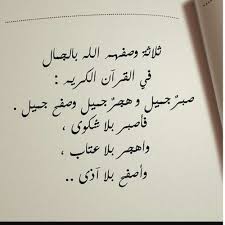 ثلاثة وصفهم الله بالجمال
في القرآن الكريم :
صبرٌ جميل و هجرٌ جميل وصفح جميل .
فأصبر بلا شكوى ،
واهجر بلا عتاب ،
وأصفح بلا أذى ..